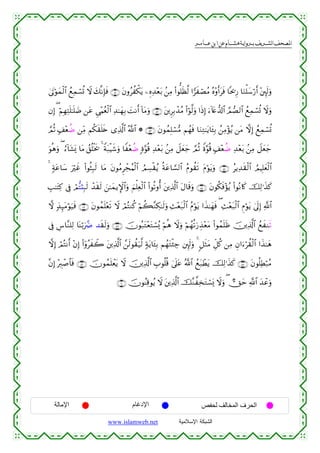 المصحف الشريف برواية هشام عن ابن عامر
وَلَئِنْ أَرْسَلْنَا رِيحًا فَرَأَوْهُ مُصْفَرًّا لَّظَلُّوا مِنْ بَعْدِهِ يَكْفُرُونَ فَإِنَّكَ لَا تُسْمِعُ الْمَوْتَى
وَلَا تُسْمِعُ الصُّمَّ الدُّعَاءَ إِذَا وَلَّوْا مُدْبِرِينَ وَمَا أَنتَ بِهَادِ الْعُمْيِ عَن ضَلَالَتِهِمْ إِن
تُسْمِعُ إِلَّا مَن يُؤْمِنُ بِآيَاتِنَا فَهُم مُّسْلِمُونَ اللَّهُ الَّذِي خَلَقَكُم مِّن ضُعْفٍ ثُمَّ
جَعَلَ مِنْ بَعْدِ ضُعْفٍ قُوَّةً ثُمَّ جَعَلَ مِنْ بَعْدِ قُوَّةٍ ضُعْفًا وَشَيْبَةً يَخْلُقُ مَا يَشَاءُ وَهُوَ
الْعَلِيمُ الْقَدِيرُ وَيَوْمَ تَقُومُ السَّاعَةُ يُقْسِمُ الْمُجْرِمُونَ مَا لَبِثُوا غَيْرَ سَاعَةٍ
كَذَلِكَ كَانُوا يُؤْفَكُونَ وَقَالَ الَّذِينَ أُوتُوا الْعِلْمَ وَالْإِيمَانَ لَقَدْ لَبِثْتُمْ فِي كِتَابِ
اللَّهِ إِلَى يَوْمِ الْبَعْثِ فَهَذَا يَوْمُ الْبَعْثِ وَلَكِنَّكُمْ كُنتُمْ لَا تَعْلَمُونَ فَيَوْمَئِذٍ لَّا
تَنفَعُ الَّذِينَ ظَلَمُوا مَعْذِرَتُهُمْ وَلَا هُمْ يُسْتَعْتَبُونَ وَلَقَدْ ضَرَبْنَا لِلنَّاسِ فِي
هَذَا الْقُرْآنِ مِن كُلِّ مَثَلٍ وَلَئِن جِئْتَهُم بِآيَةٍ لَّيَقُولَنَّ الَّذِينَ كَفَرُوا إِنْ أَنتُمْ إِلَّا
مُبْطِلُونَ كَذَلِكَ يَطْبَعُ اللَّهُ عَلَى قُلُوبِ الَّذِينَ لَا يَعْلَمُونَ فَاصْبِرْ إِنَّ
وَعْدَ اللَّهِ حَقٌّ وَلَا يَسْتَخِفَّنَّكَ الَّذِينَ لَا يُوقِنُونَ
الحرف المخالف لحفص الإدغام الإمالة
الشبكة الإسلامية www.islamweb.net